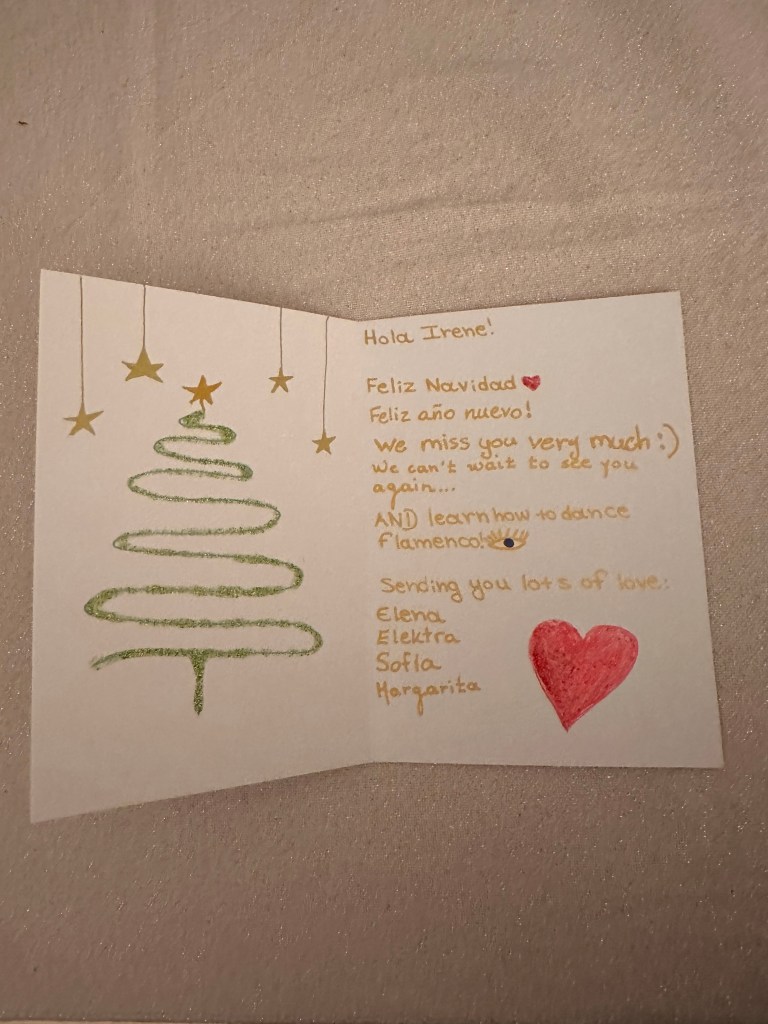 Hola Irene!
Feliz Navidad
Feliz año nuevo!
We miss you very much :)
We can't wait to see you
again...
AND learn how to dance
flamenco!
Sending you lots of love:
Elena
Elektra
Sofia
Margarita